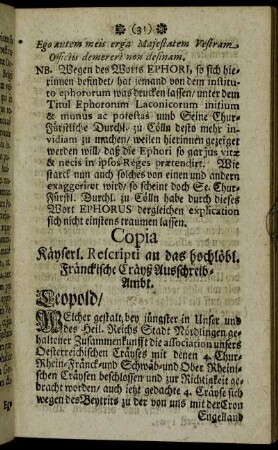 (31)
Ego autem meis erga Majestatem Vestram
Officiis demereri non desinam.
NB. Wegen des Worts EPHORI, so sich hie-
rinnen befindet/ hat jemand von dem institu-
to ephororum was drucken lassen/ unter dem
Titul Ephororum Laconicorum initium
& munus ac potestas umb Seine Chur-
Fürstliche Durchl. zu Cölln desto mehr in-
vidiam zu machen/ weilen hierinnen gezeiget
werden will, daß die Ephori so gar jus vitæ
& necis in ipsos Reges prætendirt. Wie
starck nun auch solches von einen und andern
exaggeriret wird/ so scheint doch Se. Chur-
Fürstl. Durchl. zu Cölln habe durch dieses
Wort EPHORUS dergleichen explication
sich nicht einstens traumen lassen.
Copia
Käyserl. Rescripti an das hochlöbl.
Fränckische Cräyß Ausschreib-
Ambt.
Leopold/
WElcher gestalt, bey jüngster in Unser und
des Heil. Reichs Stadt Nördlingen ge-
haltener Zusammenkunfft die association unsers
Oesterreichischen Cräyses mit denen 4. Chur-
Rhein-Fränck-und Schwäb-und Ober Rheini-
schen Cräysen beschlossen und zur Richtigkeit ge-
bracht worden/ auch jetzt gedachte 4. Cräyse sich
wegen des Beytrits zu der von uns mit der Cron
Engelland